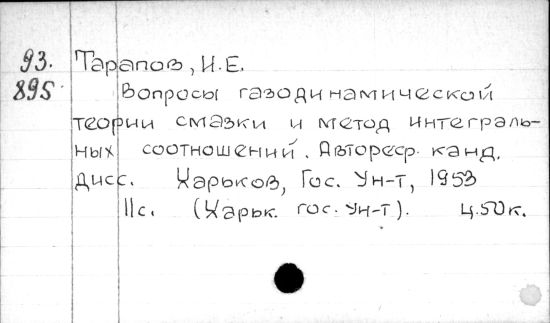 93. Тарапов, И.Е.
895 Вопросы газодинамической
теории смазки и метод интеграль-
ных соотношений. Автореф. канд.
дисс. Харьков, Гос. Ун-т, 1953
11с. (Харьк. гос. Ун-т). ц.50к.